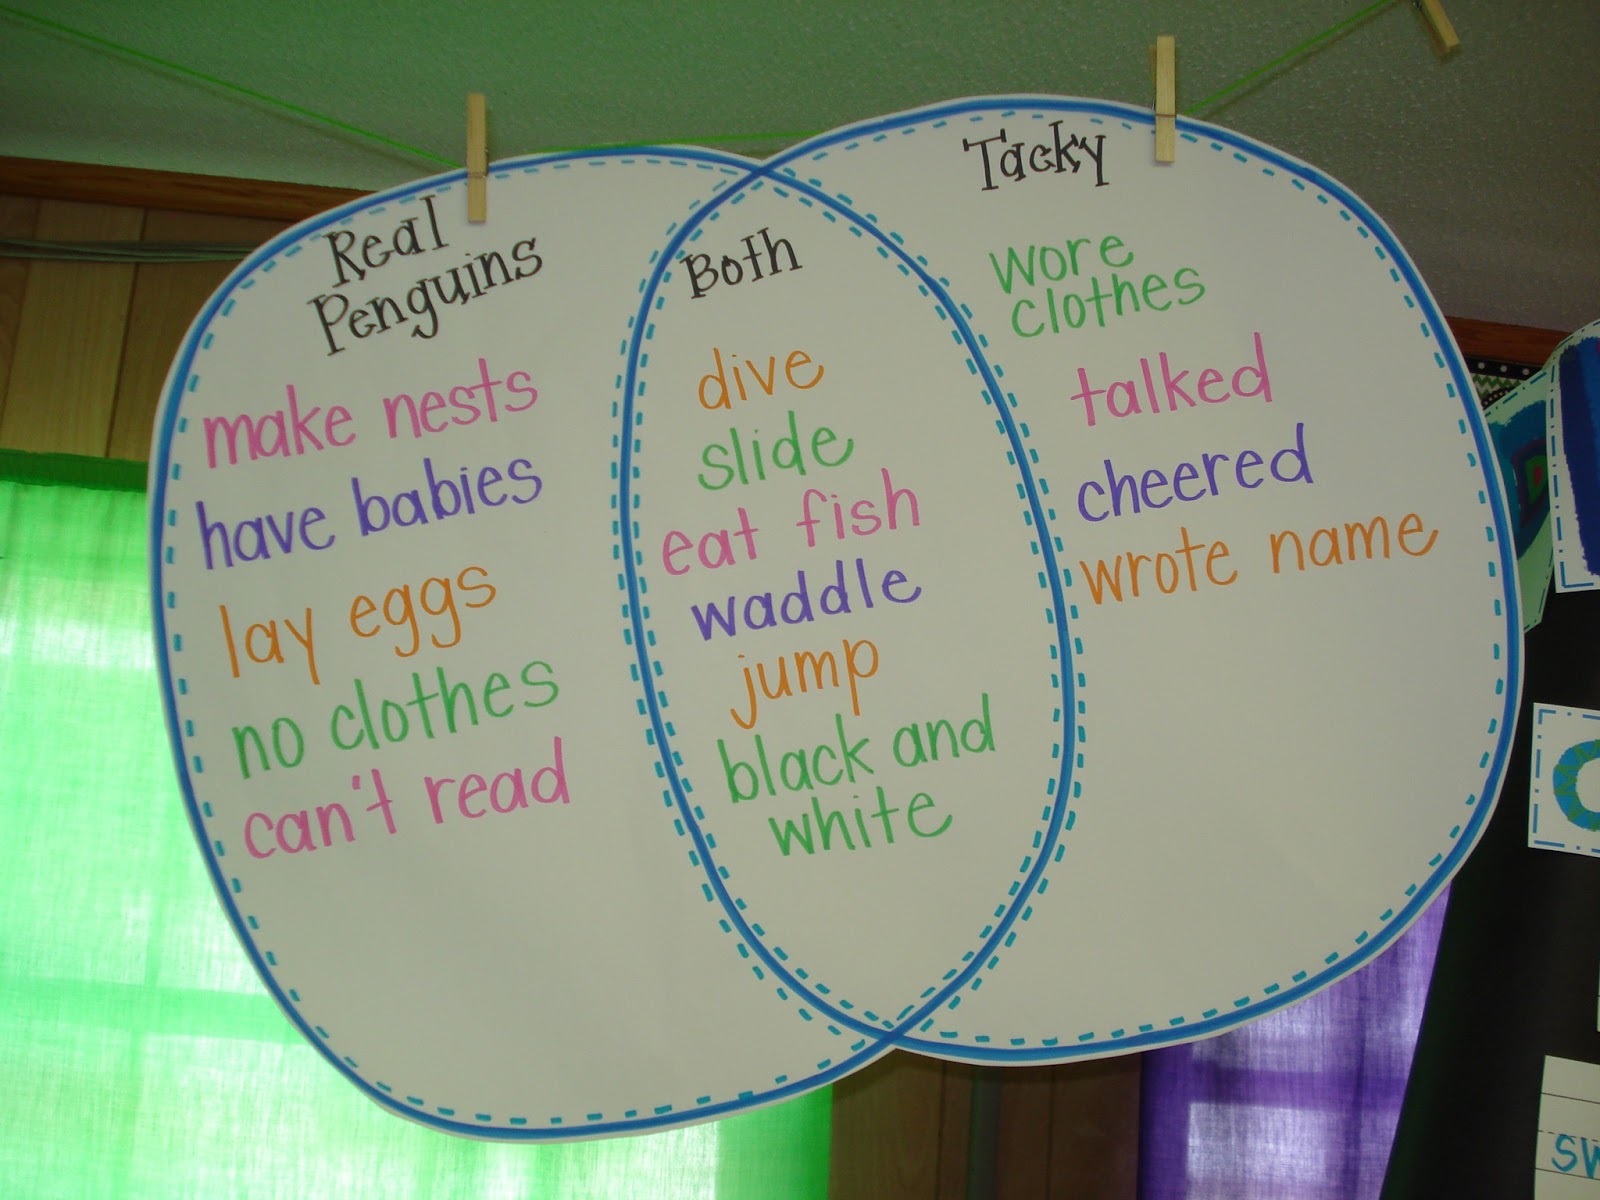 Real
Penguins
make nests
have babies
lay eggs
no clothes
can't read
Both
dive
slide
eat fish
waddle
jump
black and
white
Tacky
wore
clothes
talked
cheered
wrote name